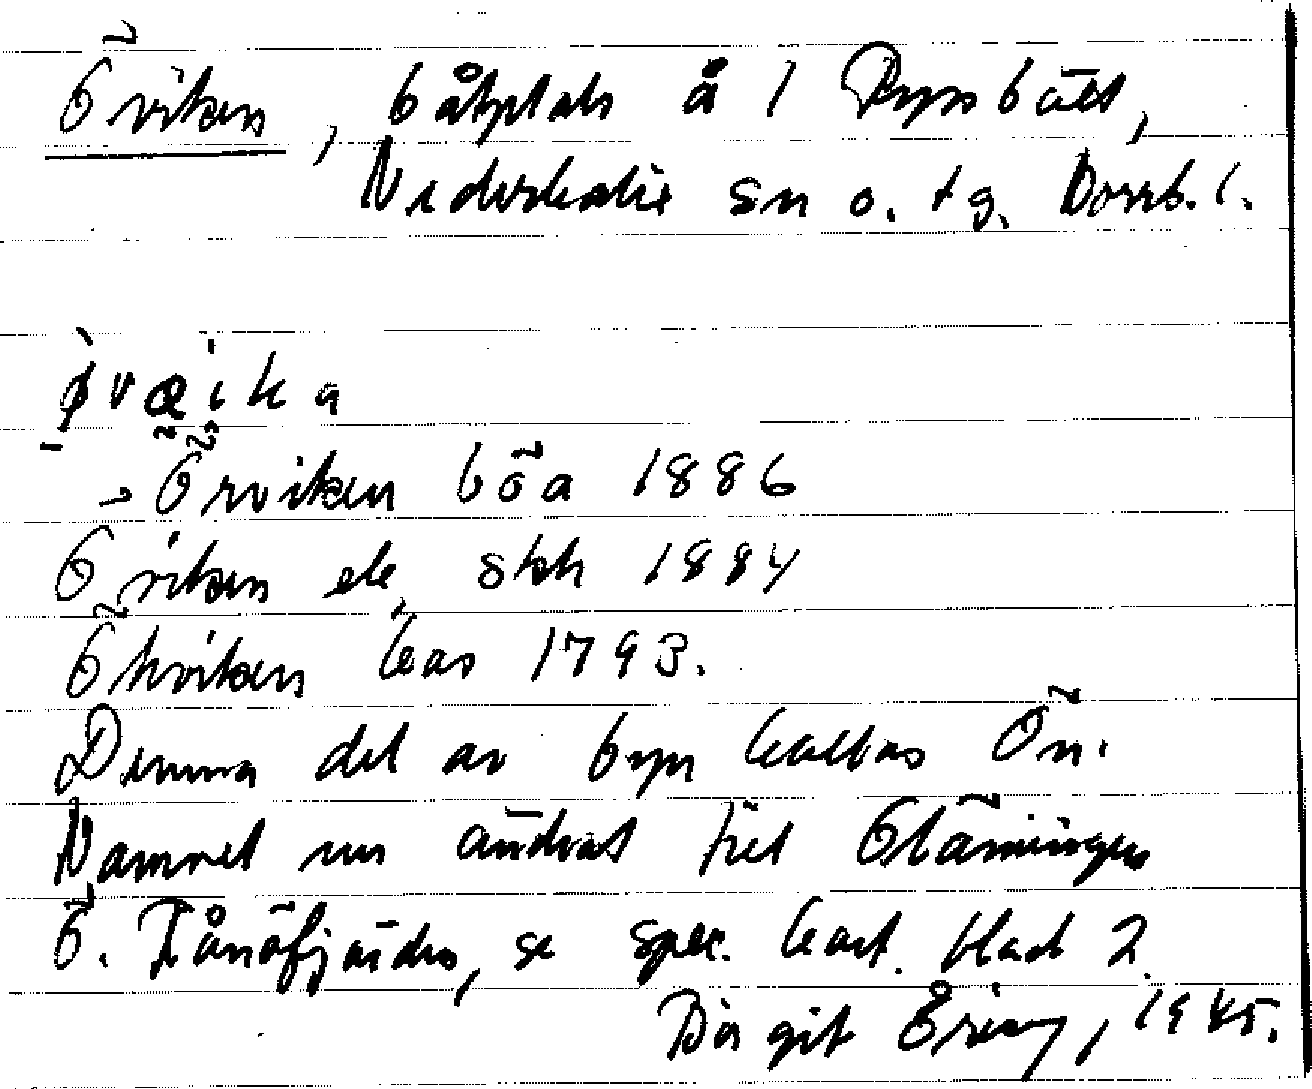 Öviken, båtplats å 1 Ryssbält,
Nederkalix sn o. tg. Norrb. l.
ø̀væika
Örviken böa 1886
Öviken ek, skh 1884
Öhviken kas 1793.
Denna del av byn kallas Ön.
Namnet nu ändrat till Glänningen
Ö. Rånöfjärden, se spec. kart. blad 2.
Birgit Ering, 1945.